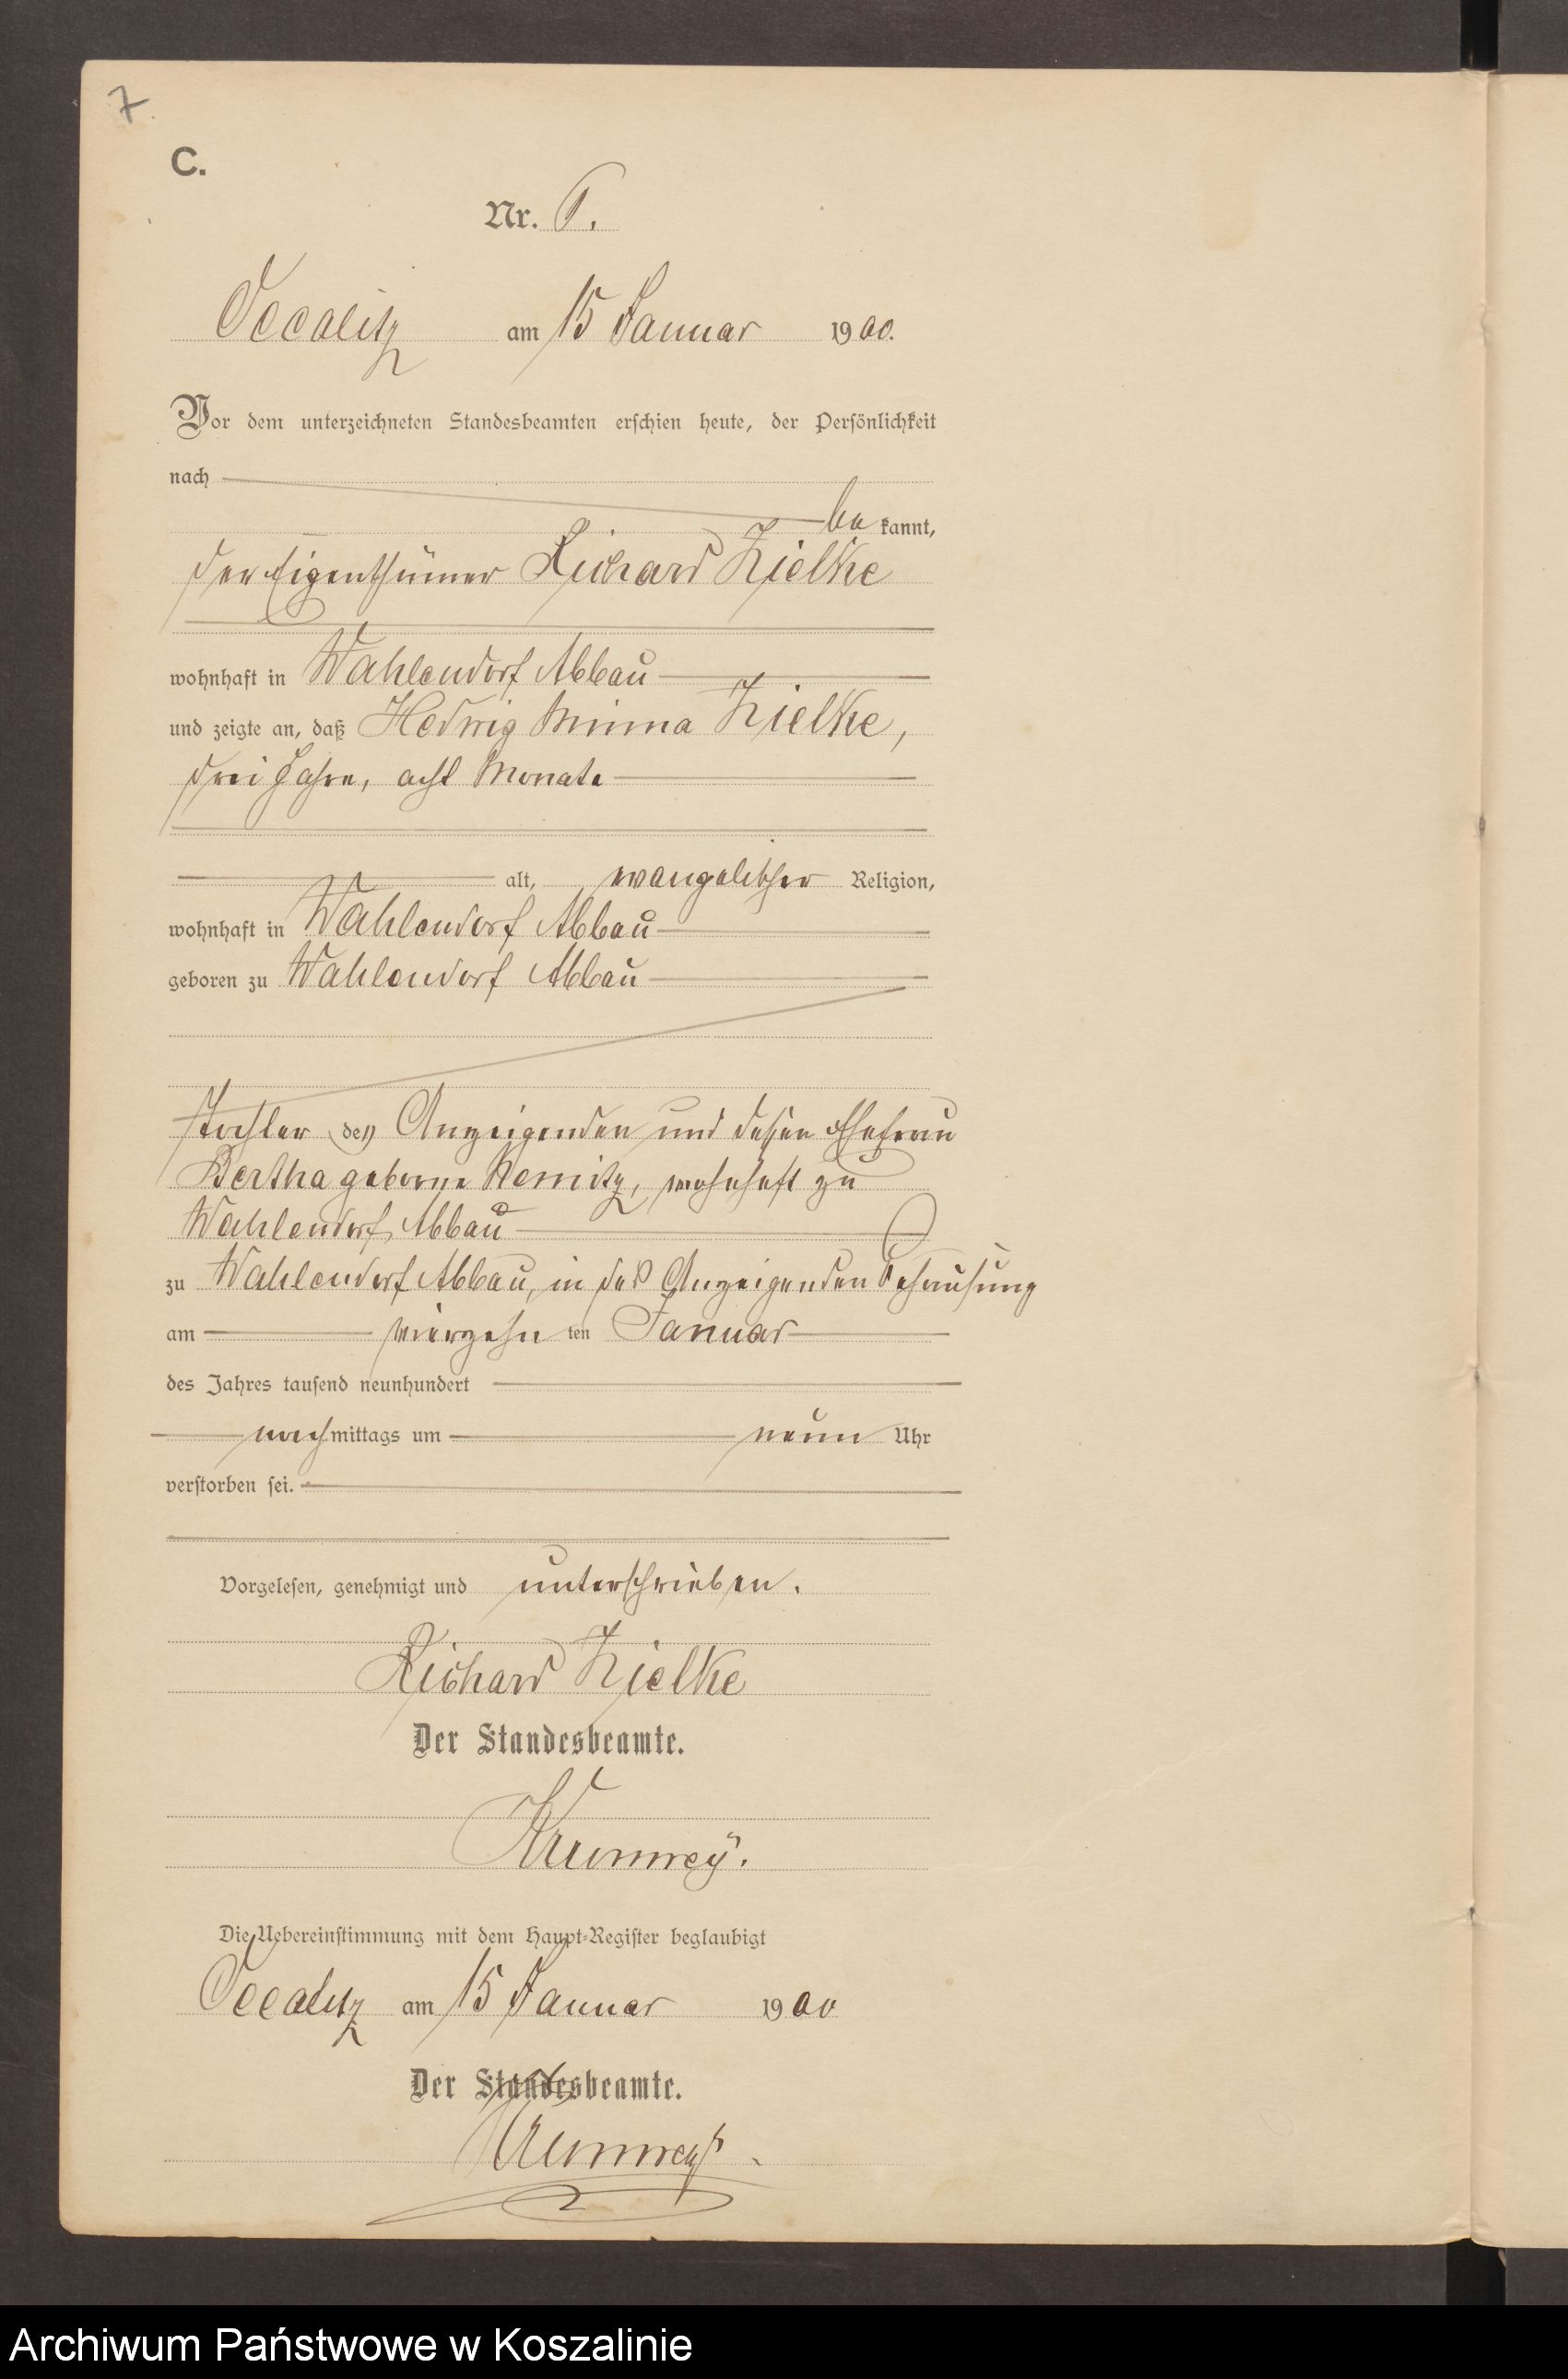 7.
C.
Nr. 6.
Occalitz am 15 Januar 1900.
Vor dem unterzeichneten Standesbeamten erschien heute, der Persönlichkeit
nach
be kannt,
der Eigenthümer Richard Zielke
wohnhaft in Wahlendorf Abbau
und zeigte an, daß Hedwig Minna Zielke,
drei Jahre, acht Monate
alt, evangelischer Religion,
wohnhaft in Wahlendorf Abbau
geboren zu Wahlendorf Abbau
Tochter des Anzeigenden und dessen Ehefrau
Bertha geborne wohnhaft zu
Wahlendorf Abbau
zu Wahlendorf Abbau, in des Anzeigenden Behausung
am vierzehn ten Januar
des Jahres tausend neunhundert
nachmittags um neun Uhr
verstorben sei.
Vorgelesen, genehmigt und unterschrieben.
Richard Zielke
Der Standesbeamte.
Krumrey.
Die Uebereinstimmung mit dem Haupt-Register beglaubigt
Occalitz am 15 Januar 1900
Der Standesbeamte.
Krumrey.
Archiwum Państwowe w Koszalinie